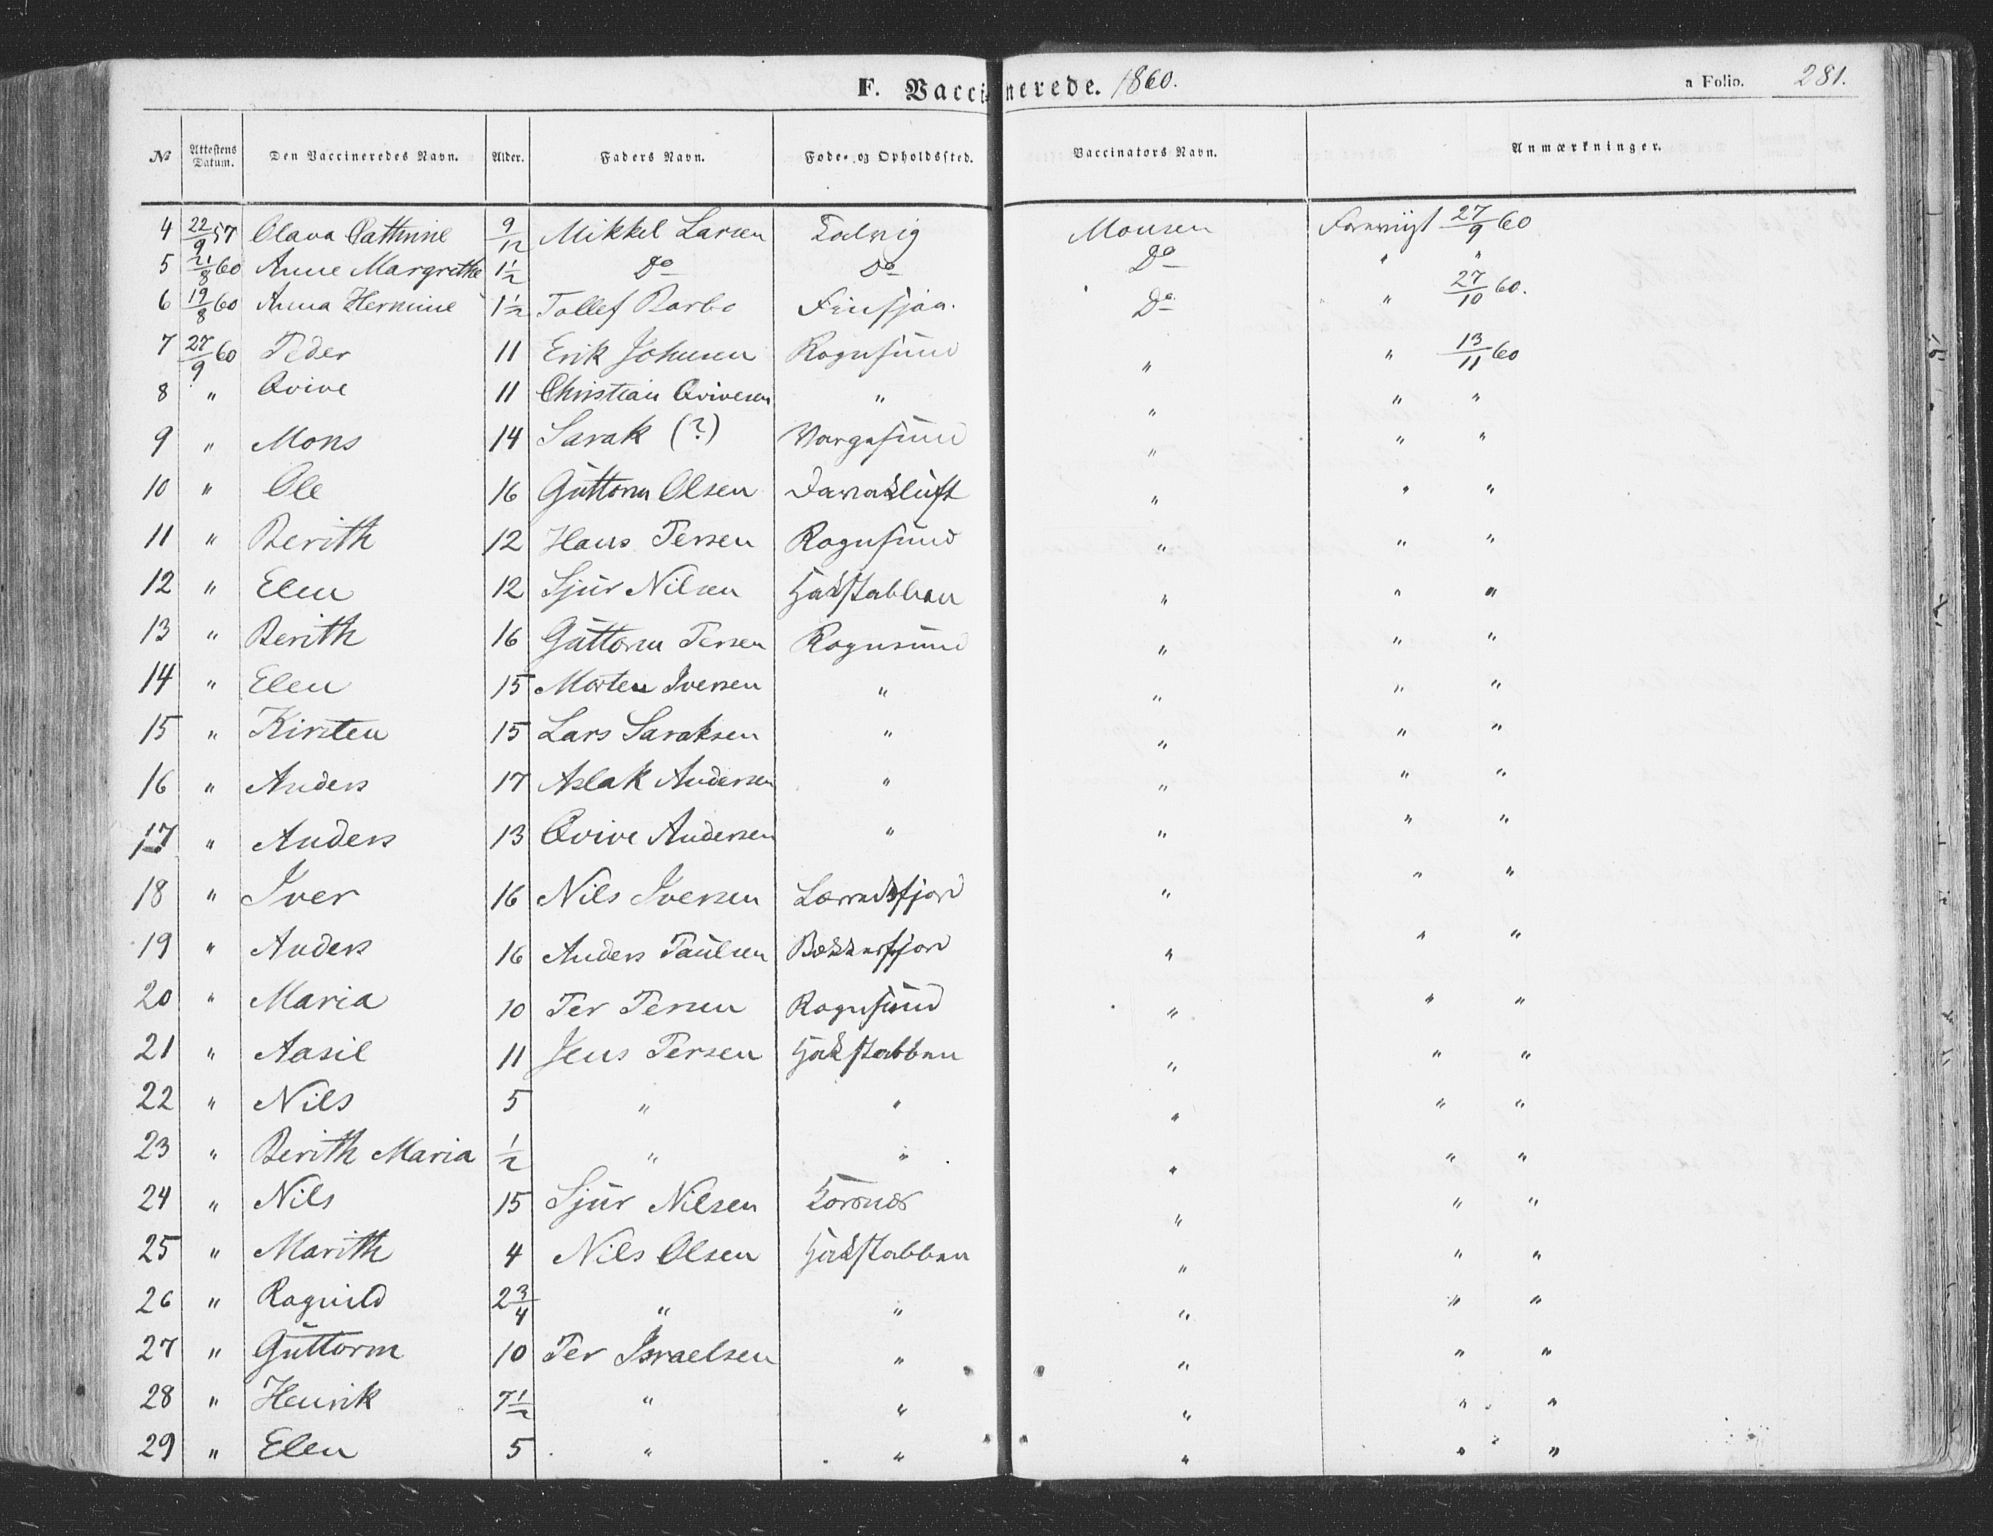 F. Vaccinerede. 1860. a Folio. 281.
№ Attestens Datum. Den Vaccineredes Navn. Alder. Faders Navn. Føde- og Opholdssted. Vaccinators Navn. Anmærkninger.
4 22/9 57 Olava Cathrine 9/12 Mikkel Larsen Talvig Monsen Forevist 27/9 60
5 21/8 60 Anne Margrethe 1½ Do Do Do " "
6 19/8 60 Anna Hermine 1½ Tollef Barbo Do " 27/10 60.
7 27/9 60 Peder 11 Erik Johnsen Rognsund " " 13/11 60
8 " Qvive 11 Christian Qvivesen " " " "
9 " Mons 14 Sarak (?) Vargsund " " "
10 " Ole 16 Guttorm Olsen " " "
11 " Berith 12 Hans Persen Rognsund " " "
12 " Elen 12 Sjur Nilsen Hakstabben " " "
13 " Berith 16 Guttorm Persen Rognsund " " "
14 " Elen 15 Morten Iversen " " " "
15 " Kirsten 15 Lars Saraksen " " " "
16 " Anders 17 Aslak Andersen " " " "
17 " Anders 13 Qvive Andersen " " " "
18 " Iver 16 Nils Iversen " " "
19 " Anders 16 Anders Paulsen " " "
20 " Maria 10 Per Persen Rognsund " " "
21 " Aasil 11 Jens Persen Hakstabben " " "
22 " Nils 5 " " " " "
23 " Berith Maria ½ " " " " "
24 " Nils 15 Sjur Nilsen Korsnes " " "
25 " Marith 4 Nils Olsen Hakstabben " " "
26 " Ragnild 2¾ " " " " "
27 " Guttorm 10 Per Israelsen " " " "
28 " Henrik 7½ " " " " "
29 " Elen 5 " " " " "